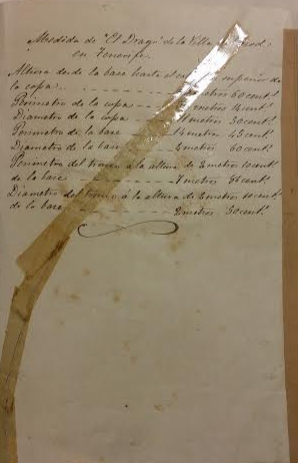 Medida de "El Drago" de la Villa
en Tenerife.
Altura desde la base hasta el superior de
la copa: metros 60 cent.s
Perimetro de la copa metros 14 cent.s
Diametro de la copa metros 30 cent.s
Perimetro de la base 14 metros 43 cent.s
Diametro de la base metros 60 cent.s
Perimetro del tronco á la altura de 2 metros 10 cent.s
de la base 7 metros cent.s
Diametro del tronco á la altura de 2 metros 10 cent.s
de la base 2 metros 30 cent.s